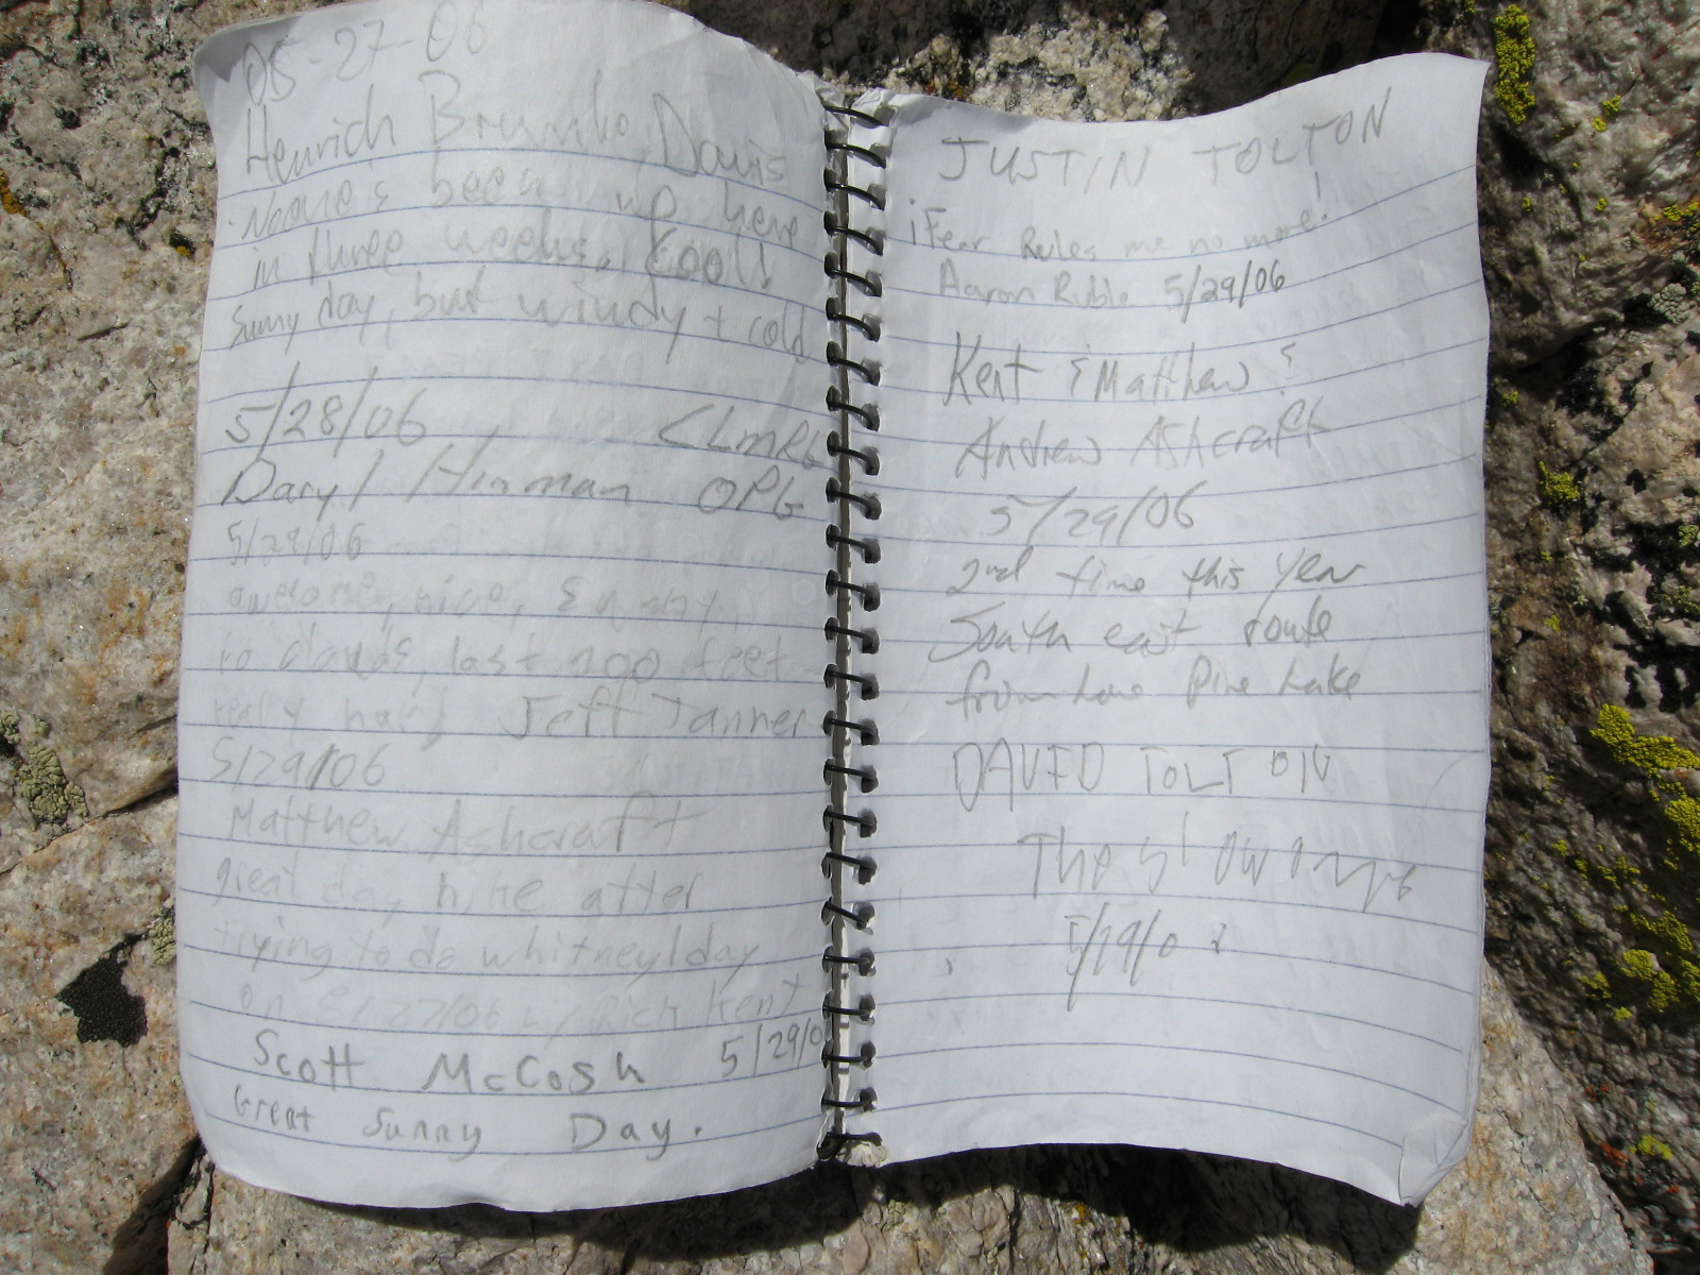 05-27-06
Henrich Davis
Noone's been up here
in three weeks. Cool!
Sunny day, but windy + cold
5/28/06 CLMRG
Daryl Hinman OPG
5/29/06
awesome, nice,
no clouds, last 200 feet
really hard, Jeff Tanner
5/29/06
Matthew Ashcraft
great day hike after
trying to do whitney 1 day
on 5/27/06 w/ Rich Kent
Scott McCosh 5/29/0
Great Sunny Day.
JUSTIN TOLTON
¡Fear Rules me no more!
Aaron Ruble 5/29/06
Kent & Matthew &
Andrew Ashcraft
5/29/06
2nd time this year
South east route
from Lone Pine Lake
DAVID TOLTON
The slow